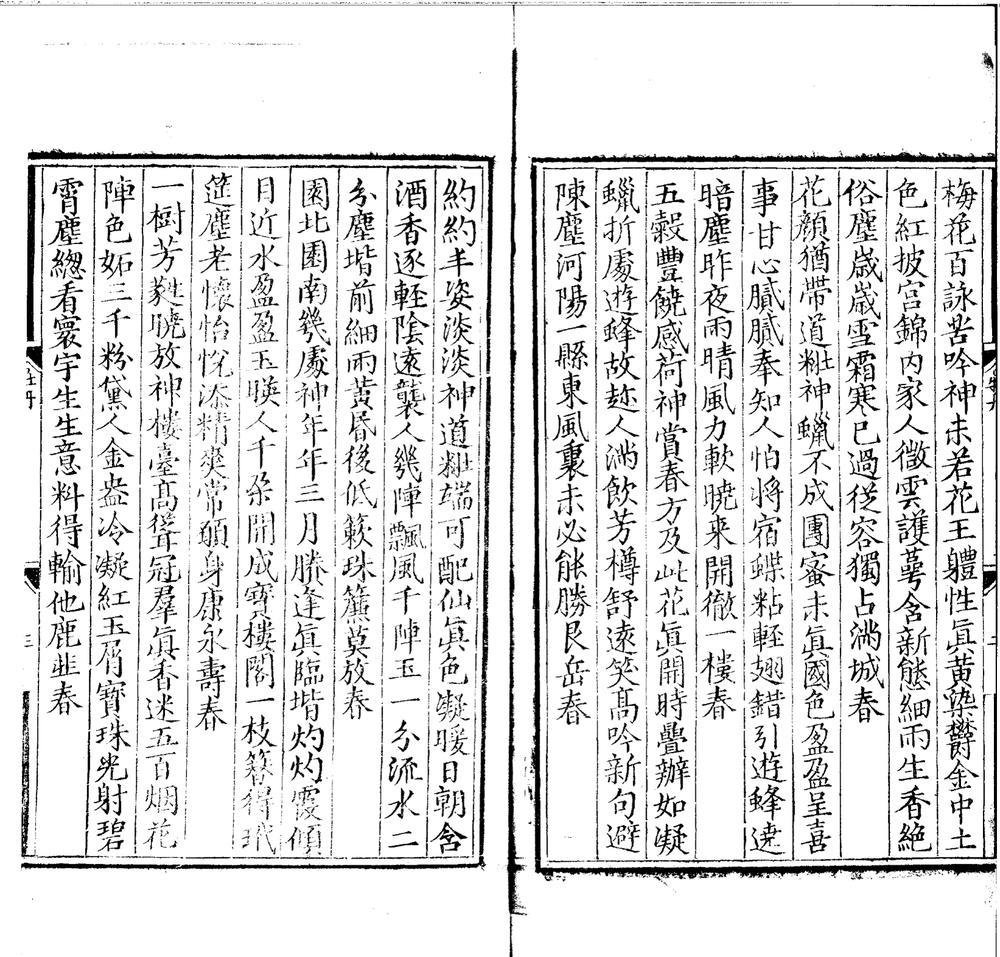 梅花百詠苦吟神未若花王體性眞黄染欝金中土
色紅披宫錦内家人微雲護萼含新態細雨生香絶
俗塵嵗嵗雪霜寒已過従容獨占滿城春
花顔猶帶道粧神蠟不成團蜜未眞國色盈盈呈喜
事甘心膩膩奉知人怕將宿蝶粘輕翅錯引遊蜂遶
暗塵昨夜雨晴風力軟曉来開徹一樓春
五糓豐饒感荷神賞春方及此花眞開時疊辦如凝
蠟折處遊蜂故趂人滿飲芳樽舒遠笑髙吟新句避
陳塵河陽一縣東風裏未必能勝艮岳春
約約丰姿淡淡神道粧端可配仙眞色凝暖日朝含
酒香逐輕陰遠襲人幾陣飄風千陣玉一分流水二
分塵堦前細雨黄昏後低簌珠簾莫放春
園北園南幾處神年年三月勝逢眞臨堦灼灼霞傾
日近水盈盈玉暎人千朶開成寳樓閣一枝簪得玳
筵塵老懷怡悅添精爽常願身康永壽春
一樹芳蕤曉放神樓臺髙聳冠羣眞香迷五百烟花
陣色妬三千粉黛人金盎冷凝紅玉屑寳珠光射碧
霄塵緫看寰宇生生意料得輸他鹿韭春
牡丹
三